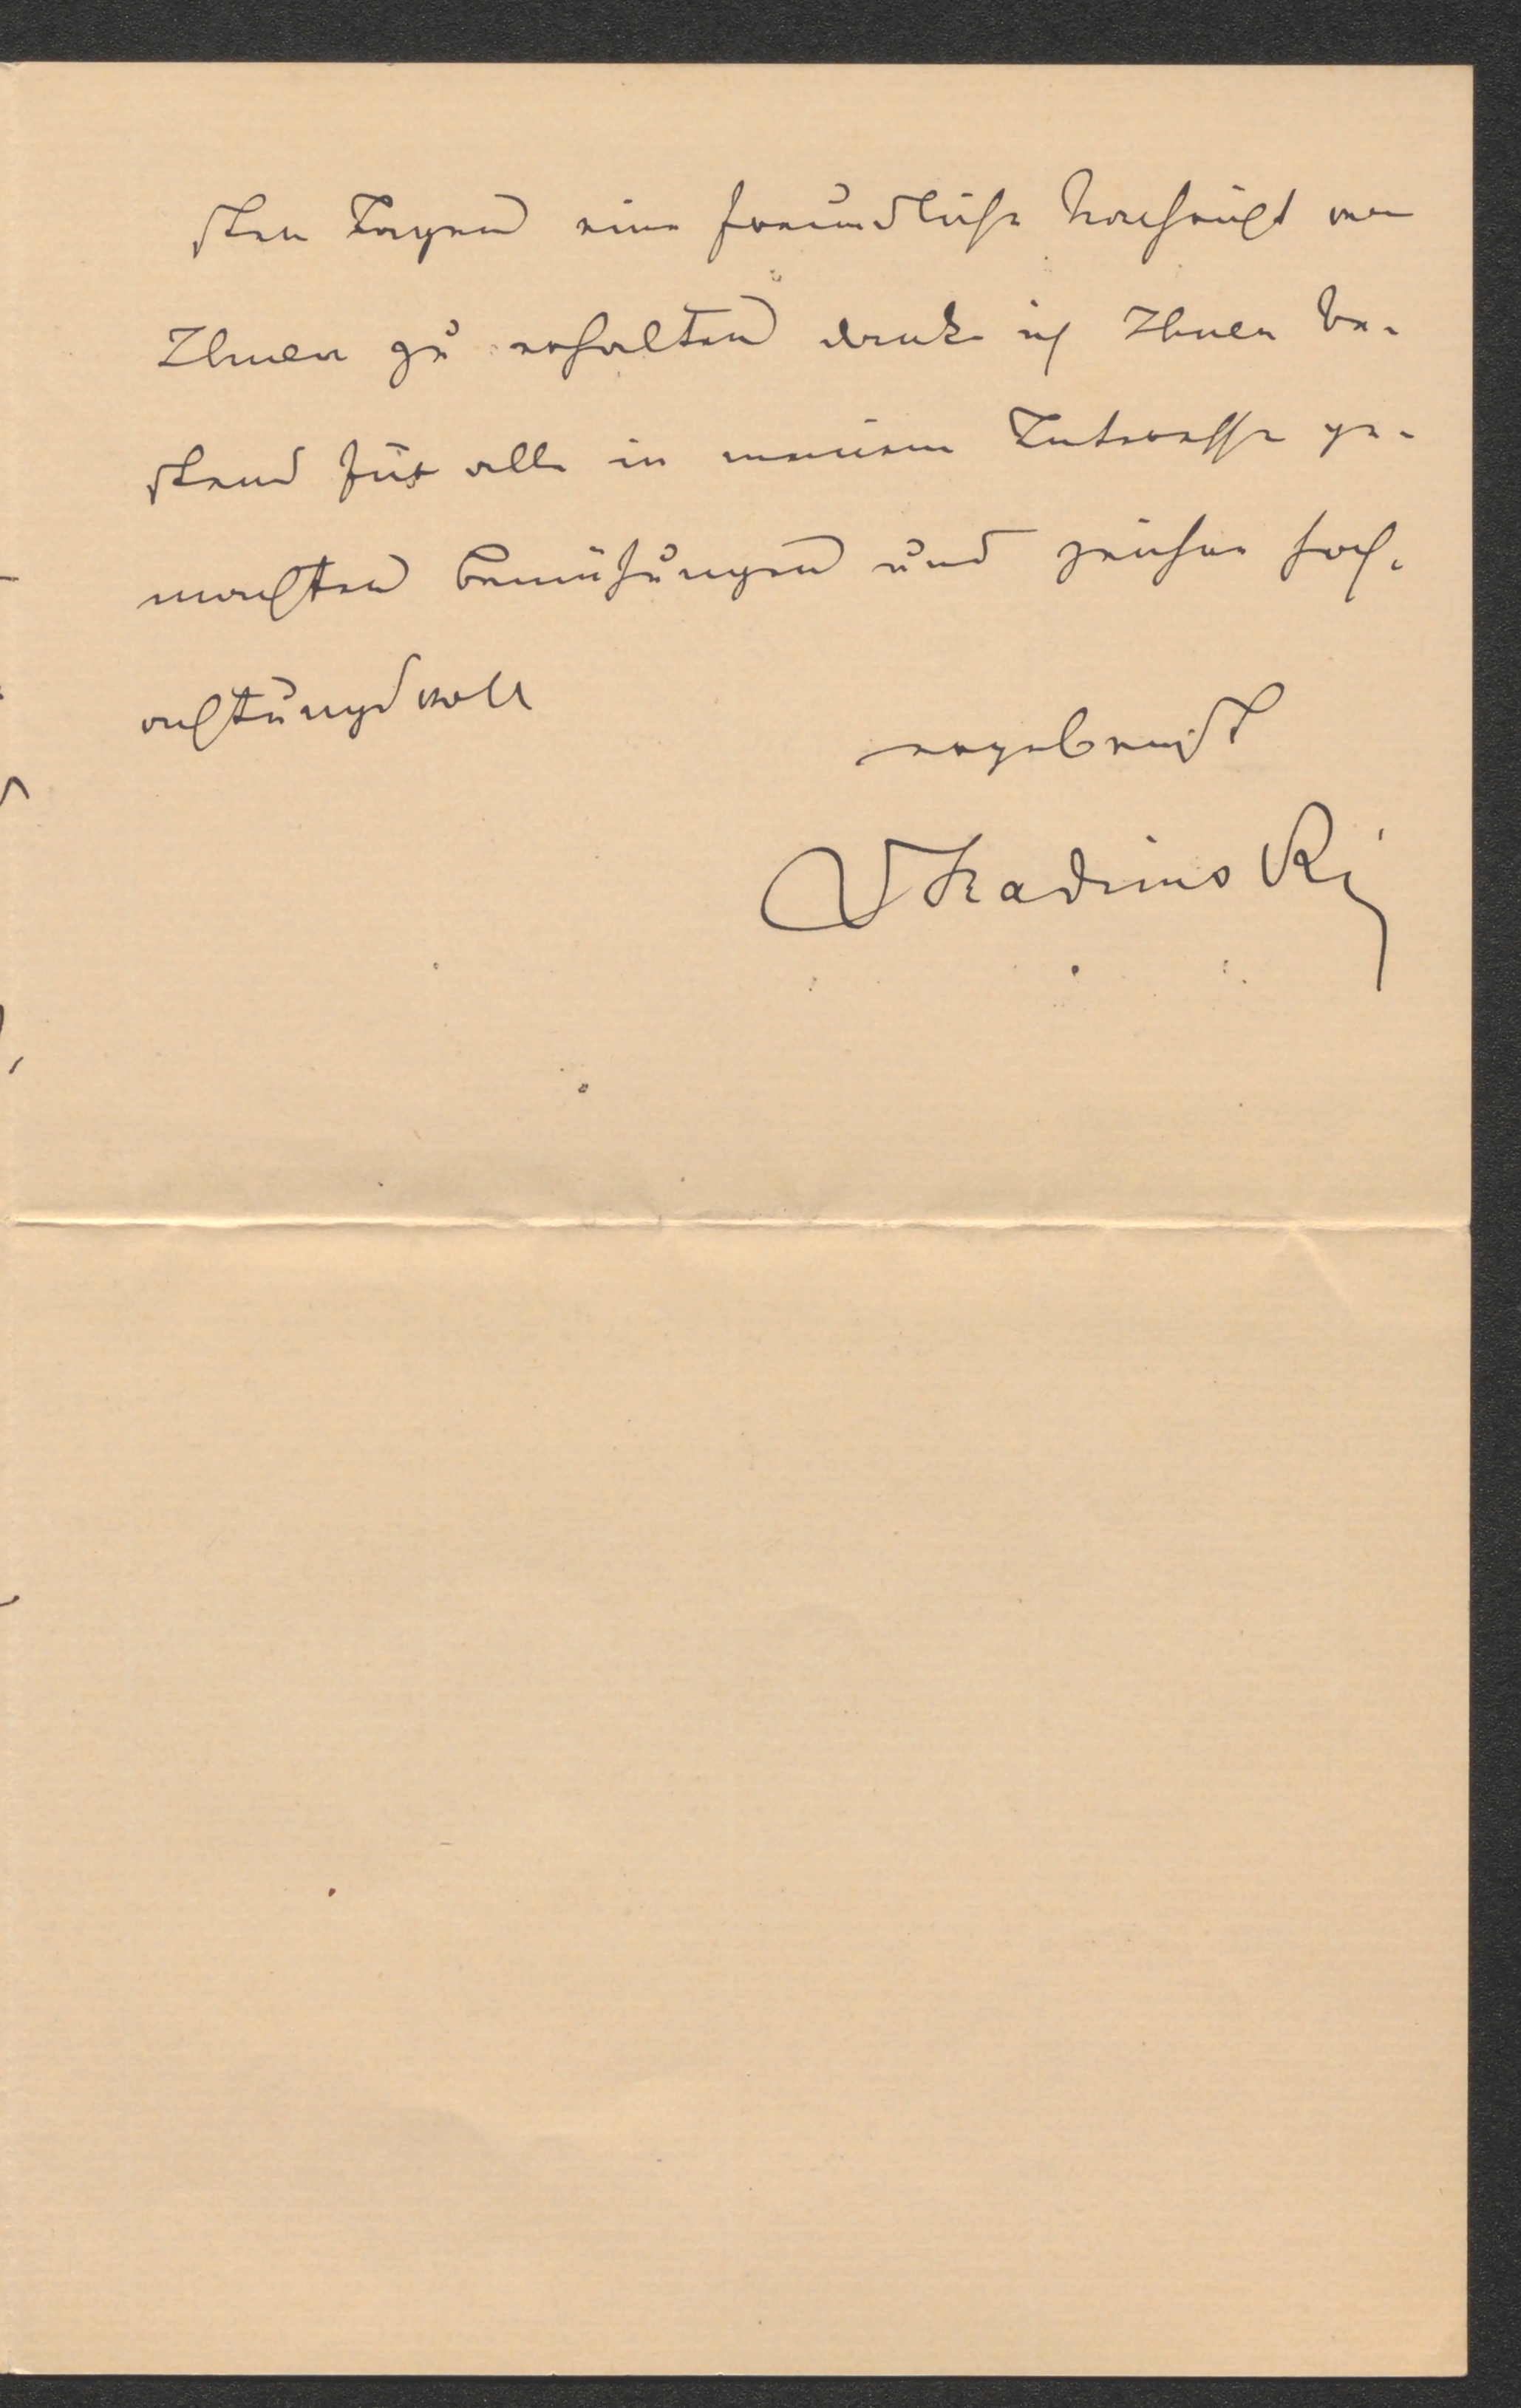 sten Tagen eine freundliche Nachricht von
Ihnen zu erhalten danke ich Ihnen be-
stens für alle in meinem Interesse ge-
machten Bemühungen und zeichne hoch-
achtungsvoll
ergebenst